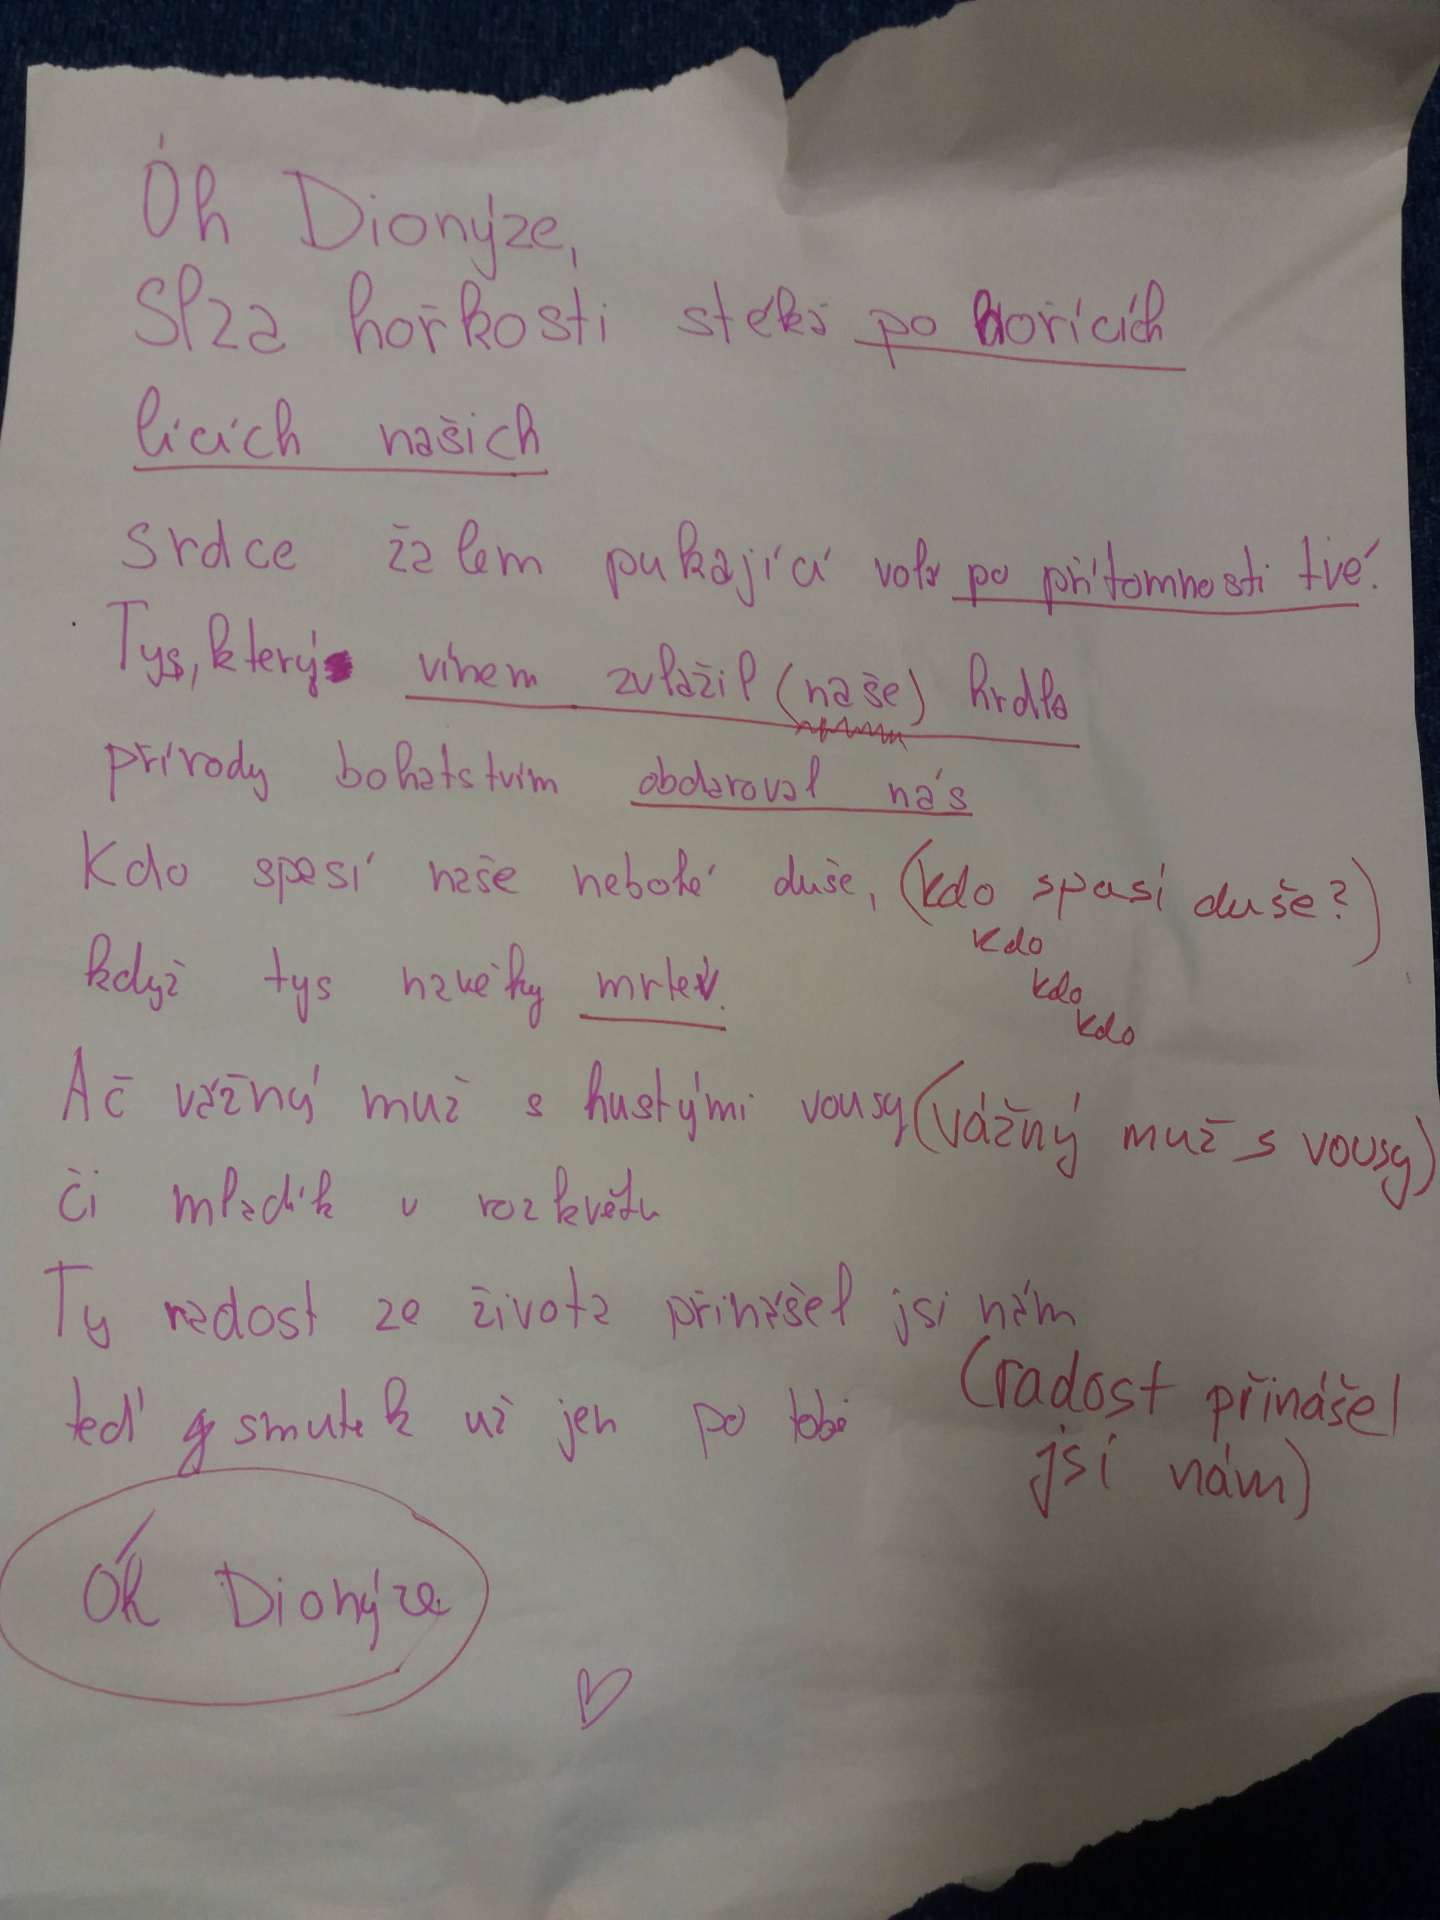 Óh Dionýze,
Slza hořkosti stéká po hořících
lících našich
srdce žalem pukající volá po přítomnosti tvé.
Tys, který vínem zvlažil (naše) hrdla
přírody bohatstvím obdaroval nás
Kdo spasí naše nebohé duše, (kdo spasí duše?)
kdo
když tys navěky mrtev.
kdo
kdo
Ač vážný muž s hustými vousy (vážný muž s vousy)
či mladík v rozkvětu
Ty radost ze života přinášel jsi nám
(radost přinášel
teď smutek už jen po tobě
jsi nám)
Óh Dionýze